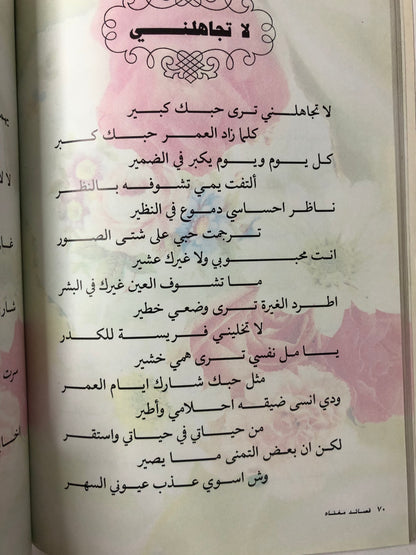 لا تجاهلني
لا تجاهلني ترى حبك كبير
كلما زاد العمر حبك كبر
كل يوم ويوم يكبر في الضمير
ألتفت يمي تشوفه بالنظر
ناظر احساسي دموع في النظير
ترجمت حبي على شتى الصور
انت محبوبي ولا غيرك عشير
ما تشوف العين غيرك في البشر
اطرد الغيرة ترى وضعي خطير
لا تخليني فريسة للكدر
يا مل نفسي ترى همي خشير
مثل حبك شارك ايام العمر
ودي انسى ضيقه احلامي وأطير
من حياتي في حياتي واستقر
لكن ان بعض التمنى ما يصير
وش اسوي عذب عيوني السهر
٧٠ قصائد مغناه